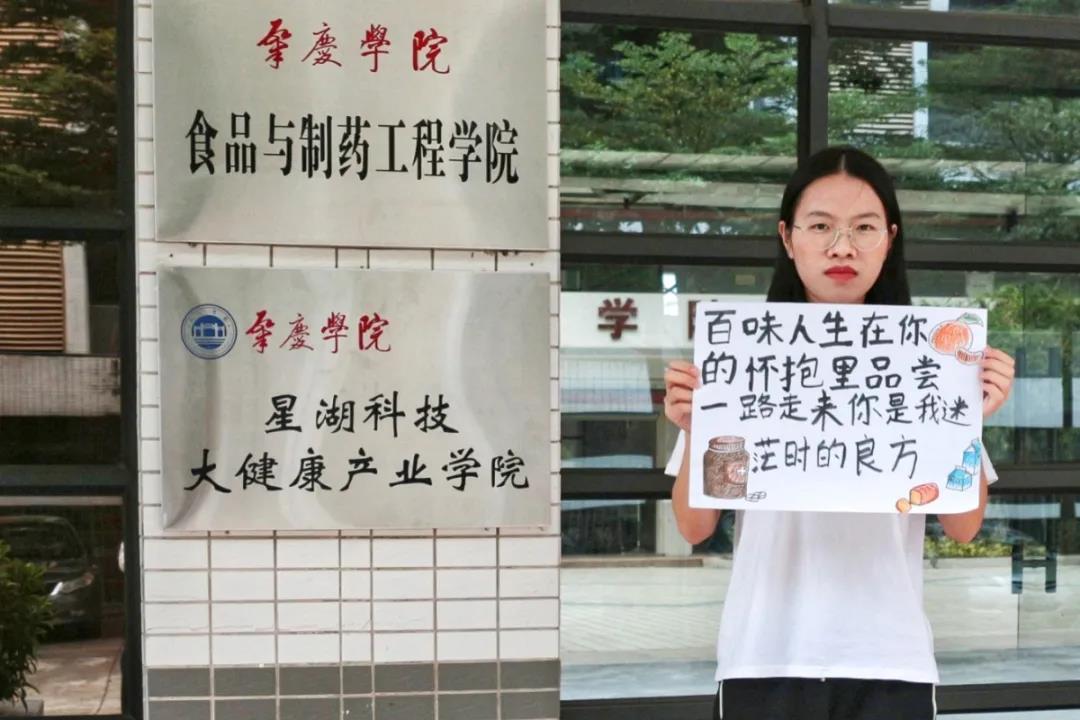 肇慶學院
食品与制药工程学院
肇慶學院
星湖科技
大健康产业学院
学
百味人生在你
的怀抱里品尝
一路走来你是我迷
茫时的良方